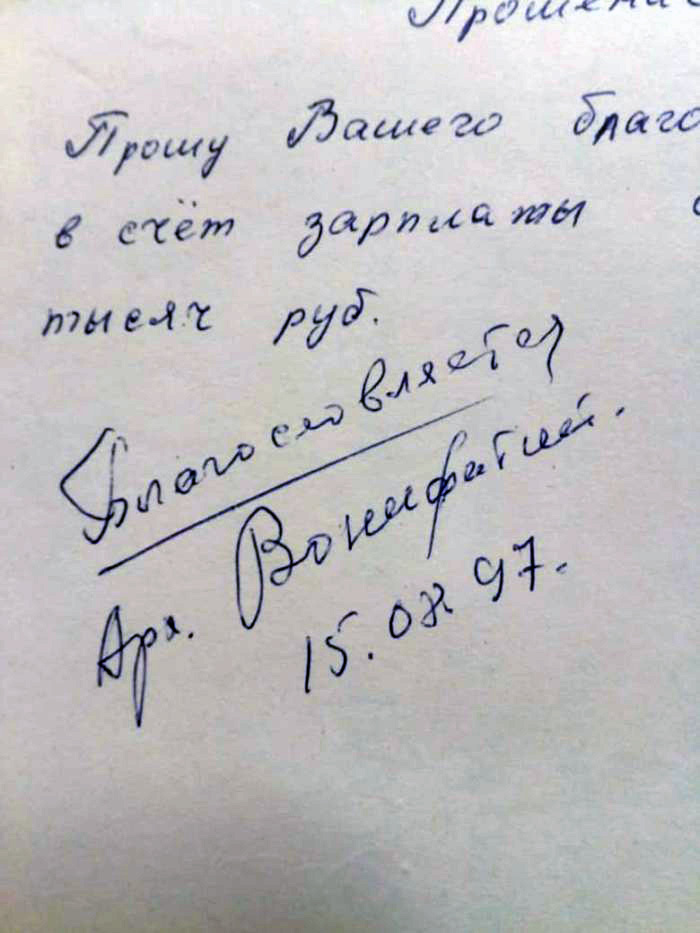 Прошение
Прошу Вашего благо
в счёт зарплаты
тысяч руб.
Благословляется
Арх. Вонифатий.
15.08 97.